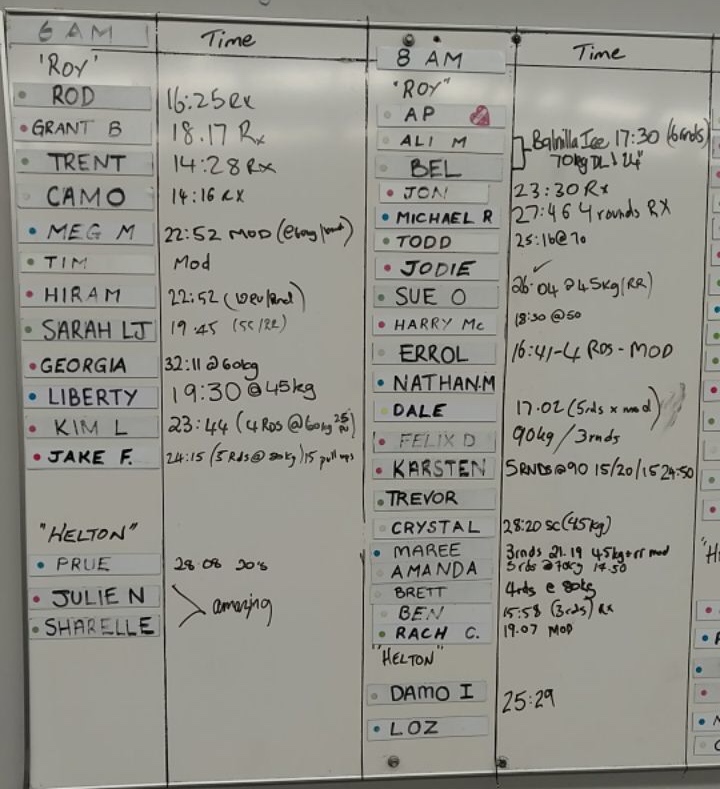 6 AM Time
'ROY'
ROD 16:25 RX
GRANT B 18.17 Rx
TRENT 14:28 Rx
CAMO 14:16 RX
MEG M 22:52 MOD
TIM Mod
HIRAM 22:52
SARAH LJ 19:45
GEORGIA 32:11 @ 60kg
LIBERTY 19:30 @ 45kg
KIM L 23:44 (4 RDS @ 60kg
JAKE F. 24:15 (5 Rds @ 80kg) 15 pull ups
"HELTON"
PRUE 28:08 20's
JULIE N
SHARELLE
amazing
8 AM Time
"ROY"
AP
ALI M
BEL
17:30 (6 rnds)
70kg DL
JON 23:30 Rx
MICHAEL R 27:46 4 rounds RX
TODD 25:16 @ 70
JODIE
SUE O 26:04 @ 45kg (RR)
HARRY Mc 18:30 @ 50
ERROL 16:41 - 4 RDS - MOD
NATHAN.M
DALE 17.02 (5rds x mod)
FELIX D 90kg / 3rnds
KARSTEN 5 RNDS @ 90 15/20/15 24:50
TREVOR
CRYSTAL 28:20 SC (45kg)
MAREE 3rnds 21.19 45kg + rr mod
AMANDA 5 rds @ 70kg 17.50
BRETT 4rds @ 80kg
BEN 15:58 (3rds) Rx
RACH C. 19.07 MOD
"HELTON"
DAMO I 25:29
LOZ